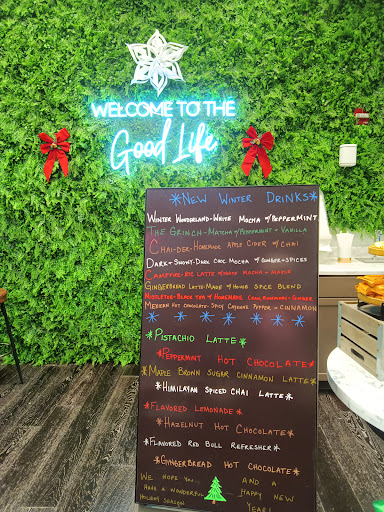 WELCOME TO THE
Good Life
*NEW WINTER DRINKS*
WINTER WONDERLAND-WHITE MOCHA w/PEPPERMINT
THE GRINCH-MATCHA w/PEPPERMINT + VANILLA
CHAI-DER-HOMEMADE APPLE CIDER w/CHAI
DARK + SNOWY-DARK CHOC MOCHA w/GINGER+SPICES
CAMPFIRE- LATTE w/ MOCHA + MAPLE
GINGERBREAD LATTE-MADE w/HOUSE SPICE BLEND
MISTLETOE-BLACK TEA w/HOMEMADE + GINGER
MEXICAN HOT CHOCOLATE-SPICY CAYENNE PEPPER + CINNAMON
*PISTACHIO LATTE*
*PEPPERMINT HOT CHOCOLATE*
*MAPLE BROWN SUGAR CINNAMON LATTE*
*HIMILAYAN SPICED CHAI LATTE*
*FLAVORED LEMONADE*
*HAZELNUT HOT CHOCOLATE*
*FLAVORED RED BULL REFRESHER*
*GINGERBREAD HOT CHOCOLATE*
WE HOPE YOU
HAVE A WONDERFUL
HOLIDAY SEASON
AND A
HAPPY NEW
YEAR!